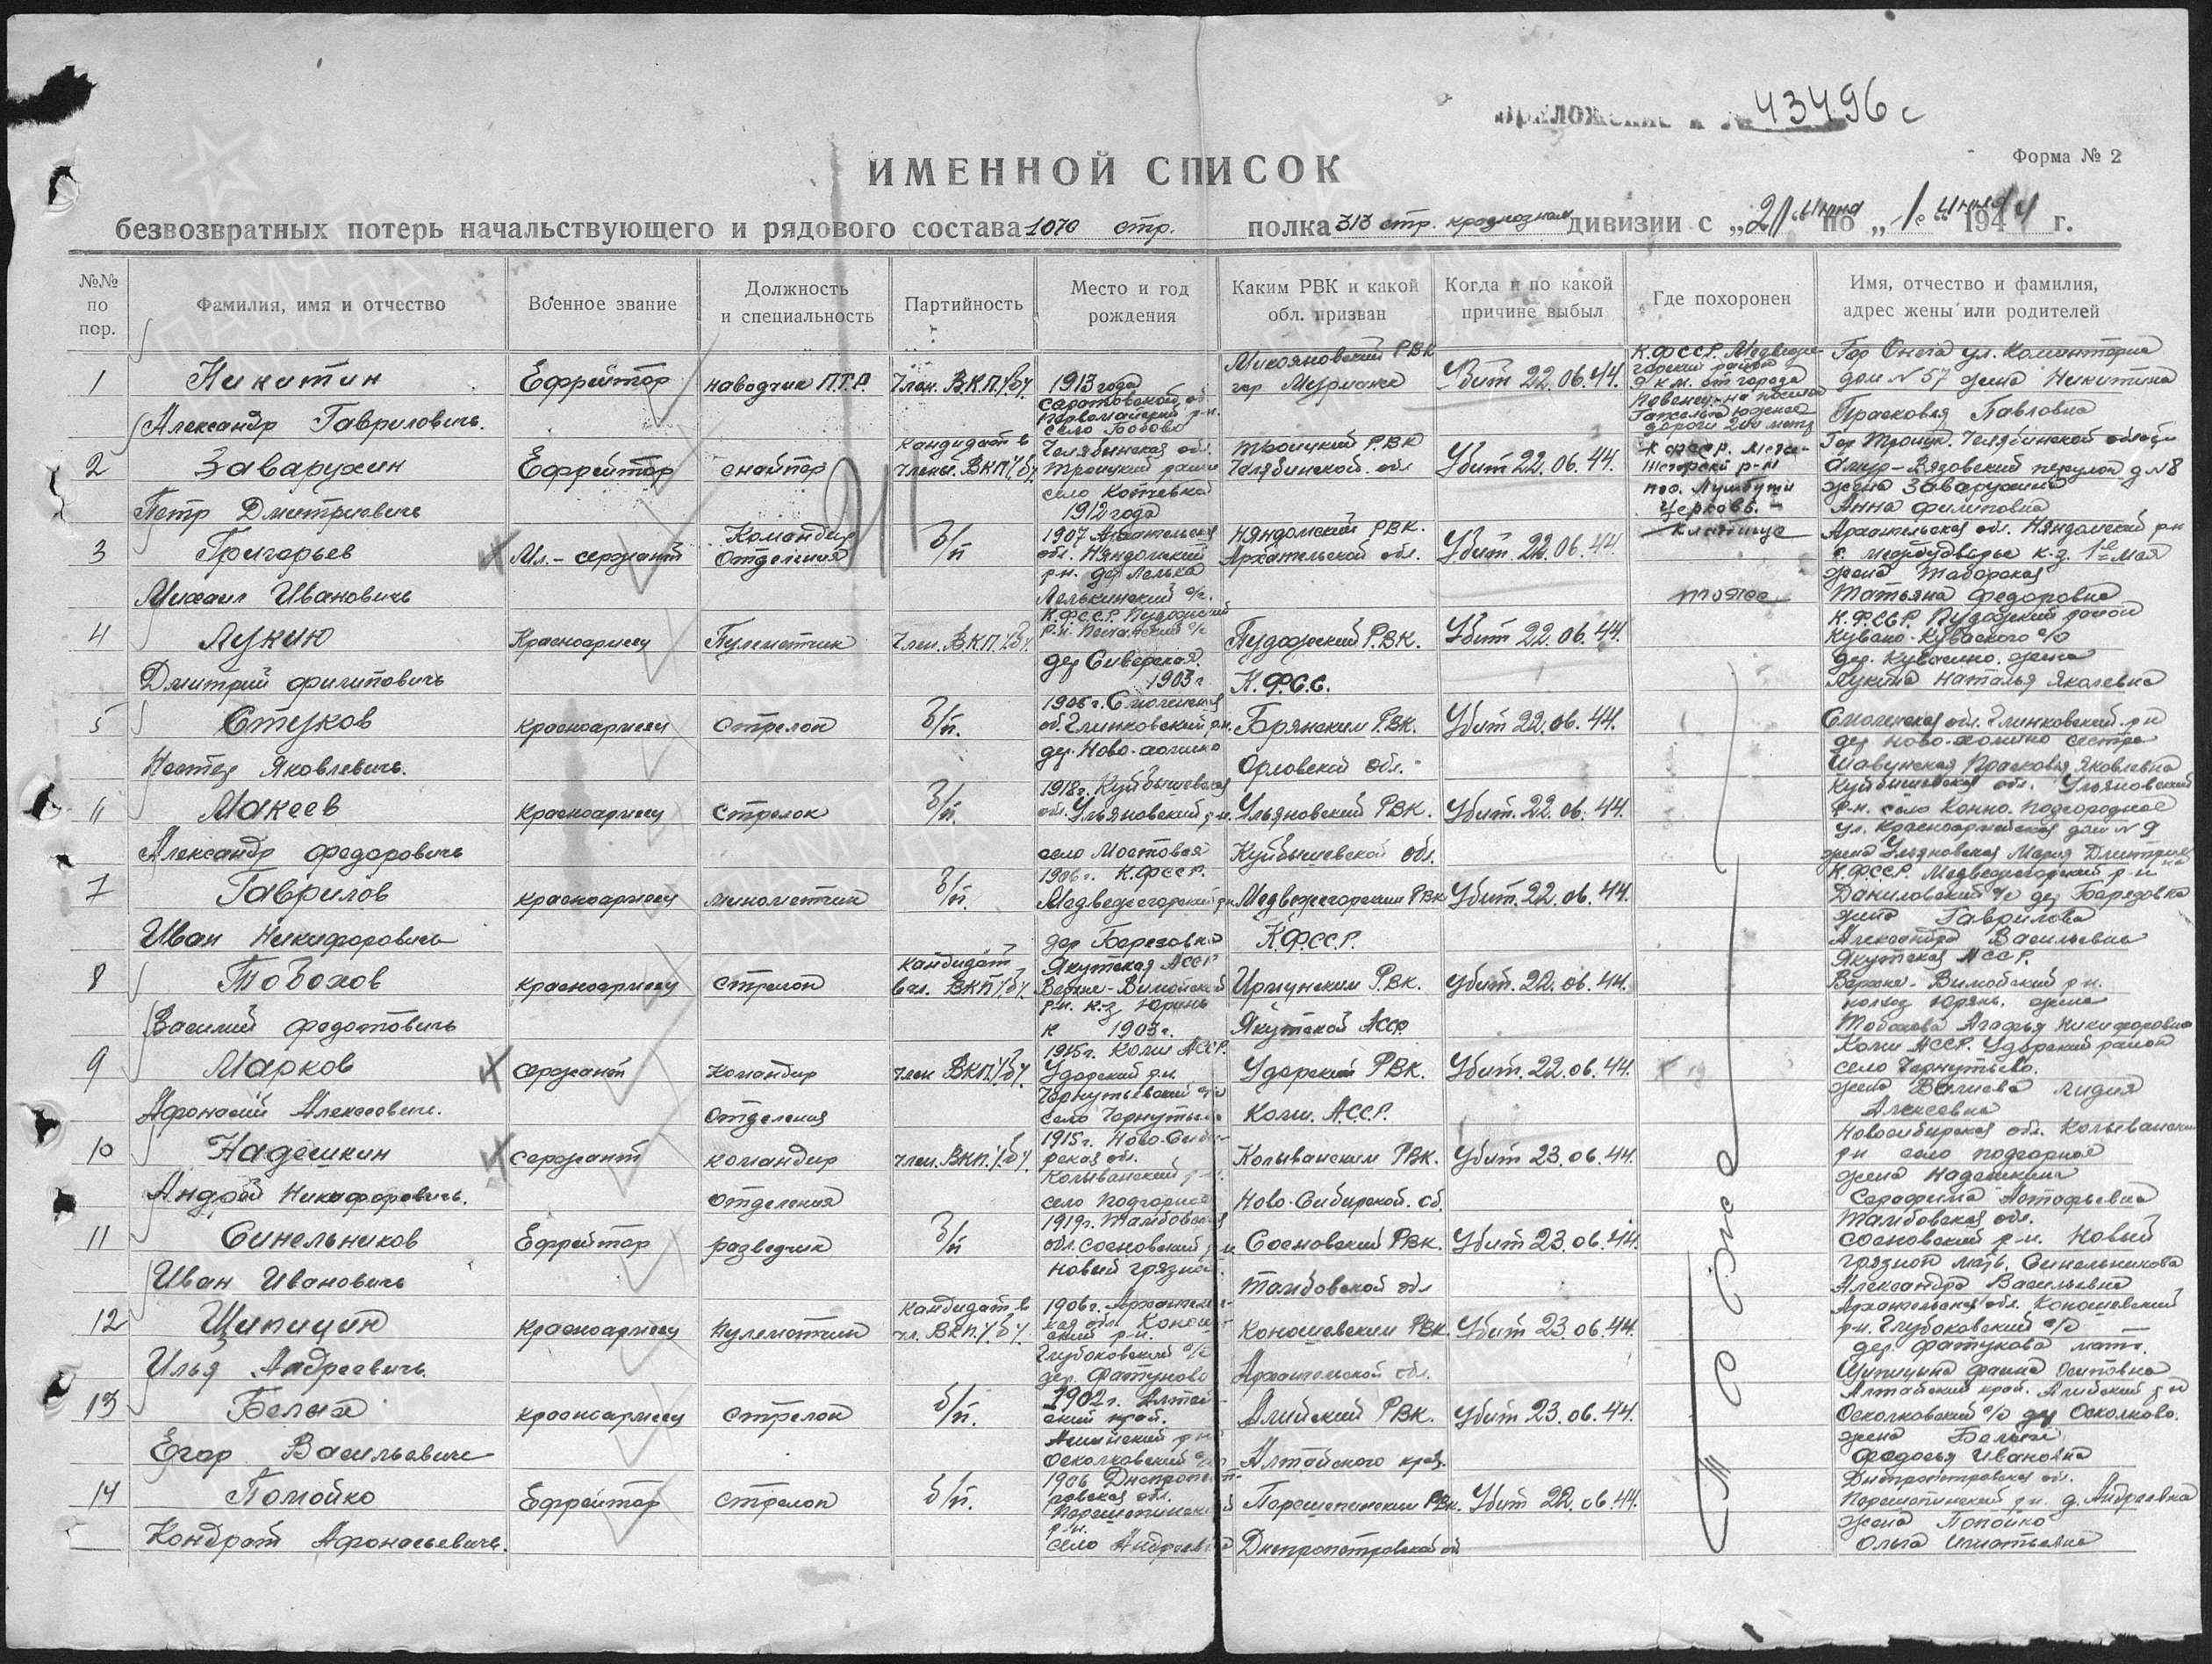 Приложение к № 43496 с
Форма № 2
ИМЕННОЙ СПИСОК
безвозвратных потерь начальствующего и рядового состава 1070 стр. полка 313 стр. краснознам дивизии с „21“ июня по „1“ 1944 г.
№№ по пор.
Фамилия, имя и отчество
Военное звание
Должность и специальность
Партийность
Место и год рождения
Каким РВК и какой обл. призван
Когда и по какой причине выбыл
Где похоронен
Имя, отчество и фамилия, адрес жены или родителей
1 Никитин Ефрейтор наводчик П.Т.Р. Член. ВКП/б/. 1913 года Микояновский РВК Убит 22.06.44.
Александр Гаврилович. Саратовской об. Первомайский р-н. село Бобово гор Мурманск
К.ФССР. Медвеже-горский район 9 км. от города Повенец
дороги 200 метр
Гор Онега ул. Коминтерна дом № 57 жена Никитина Прасковья Павловна
2 Заварухин Ефрейтор снайпер Кандидат в члены. ВКП/б/. Челябинская обл. Троицкий РВК Убит 22.06.44.
Петр Дмитриевич Троицкий район село Котевка 1912 года Челябинской. обл
пос. Пушбути Церковь. - кладбище
Гор Троицк. Челябинской области
переулок д №8 жена Заварухина Анна Филиповна
3 Григорьев Мл.-сержант Командир Отделения б/п 1907 Архангельская обл. Няндомский р-н. дер Лельма Няндомский РВК. Убит. 22.06.44
Михаил Иванович Архангельской обл. тоже
Архангельская обл. Няндомский р-н к-з. 1е мая жена Таборская Татьяна Федоровна
4 Лукин Красноармеец Пулеметчик Член. ВКП/б/. К.Ф.С.С.Р. Пудожский р-н. Пудожский РВК. Убит 22.06.44.
Дмитрий Филипович дер Сиверская. 1903 г К.Ф.С.С.
К.Ф.С.С.Р. Пудожский район
жена Лукина Наталья Яковлевна
5 Стуков красноармеец стрелок б/п. 1906 г. Смоленская об. Глинковский р-н. Брянским РВК. Убит 22.06.44.
Нестер Яковлевич. дер. Ново-холино Орловской обл.
Смоленская обл. Глинковский р-н дер Ново-холино сестра Прасковья Яковлевна
6 Макеев красноармеец стрелок б/п. 1918 г. Куйбышевская обл. Ульяновский р-н. Ульяновский РВК. Убит. 22.06.44.
Александр Федорович село Мостовая Куйбышевской обл.
Куйбышевская обл. Ульяновский р-н. село Конно. Подгородное ул. Красноармейская дом № 9 жена Ульяновская Мария
7 Гаврилов красноармеец минометчик б/п. 1906 г. К.ФССР. Медвежегорский р-н Медвежегорским РВК Убит. 22.06.44.
Иван Никифорович дер Березовка К.Ф.С.С.Р.
К.ФССР. Медвежегорский р-н Даниловский с/с дер Березовка жена Гаврилова Александра Васильевна
8 Тобохов красноармеец стрелок Кандидат в чл. ВКП/б/. Якутская АССР Верхне-Вилюйский р-н. к-з Юрень 1903 г. РВК. Убит. 22.06.44.
Василий Федотович Якутской АССР
Якутская АССР. Верхне-Вилюйский р-н. жена Тобохова Агафья Никифоровна
9 Марков сержант командир отделения член ВКП/б/. 1915 г. Коми АССР. Удорский р-н. Чернутьевский с/с село Чернутьево Удорский РВК. Убит. 22.06.44.
Афонасий Алексеевич. Коми. А.С.С.Р.
Коми АССР. Удорский район село Чернутьево. жена Лидия Алексеевна
10 Надешкин сержант командир отделения член. ВКП/б/. 1915 г. Ново-Сибирская обл. Колыванский р-н. село Подгорное Колыванским РВК. Убит 23.06.44.
Андрей Никифорович. Ново-Сибирской. об.
Новосибирская обл. Колыванский р-н село подгорное жена Надешкина Серафима
11 Синельников Ефрейтор разведчик б/п 1919 г. Тамбовская обл. Сосновский р-н Новый грязно Сосновский РВК. Убит 23.06.44.
Иван Иванович Тамбовской обл
Тамбовская обл. Сосновский р-н. Новый грязной мать. Синельникова Александра Васильевна
12 Щипицин Красноармеец пулеметчик Кандидат в чл. ВКП/б/. 1906 г. Архангельская обл. Коношский р-н. Глубоковский с/с дер. Фатуново Коношевским РВК. Убит 23.06.44.
Илья Андреевич. Архангельской обл.
Архангельская обл. Коношевский р-н. Глубоковский с/с мать. Щипицына
13 Белик красноармеец стрелок б/п. 1902 г. Алтайский край. РВК. Убит 23.06.44.
Егор Васильевич Осколковский Алтайского края.
Алтайский край. Осколковский с/с Осколково. жена Федосья Ивановна
14 Помойко Ефрейтор стрелок б/п. 1906 Днепропетровская обл. село Андреевка РВК. Убит 22.06.44.
Кондрат Афонасьевич. Днепропетровской об
Днепропетровская обл. р-н. д. Андреевка жена Ольга Игнатьевна
Тоже